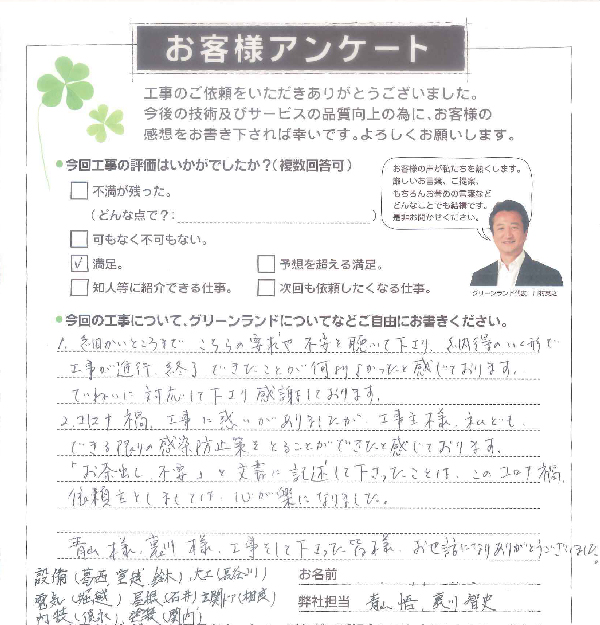 お客様アンケート
工事のご依頼をいただきありがとうございました。
今後の技術及びサービスの品質向上の為に、お客様の
感想をお書き下されば幸いです。よろしくお願いします。
•今回工事の評価はいかがでしたか？（複数回答可）
不満が残った。
（どんな点で？:　）
可もなく不可もない。
✓ 満足。
予想を超える満足。
知人等に紹介できる仕事。
次回も依頼したくなる仕事。
お客様の声が私たちを熱くします。
厳しいお言葉、ご提案、
もちろんお褒めの言葉など
どんなことでも結構です。
是非お聞かせください。
グリーンランド代表
•今回の工事について、グリーンランドについてなどご自由にお書きください。
1. 細かいところまで こちらの要求や 不安を聴いて下さり、納得のいく形で
工事が進行、終了できたことが何よりよかったと感じております。
ていねいに 対応して下さり感謝しております。
2. コロナ禍、工事に惑いがありましたが、工事主様、私ども
できる限りの感染防止策をとることができたと感じております。
「お茶出し 不要」と文書に記述して下さったことは、このコロナ禍、
依頼主としましては、心が楽になりました。
青山様、裏川様、工事をして下さった皆様、お世話になりありがとうございました。
設備（葛西 鈴木）、大工（長谷川）
電気（堀越）屋根（石井）玄関ドア（相良）
内装（ ）、
お名前
弊社担当 青山 悟、裏川 智史